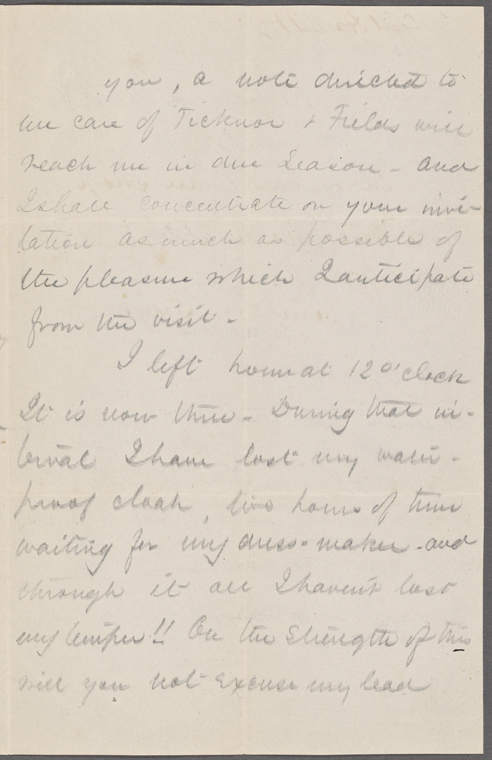 you, a note directed to
me care of Ticknor & Fields will
reach me in due season - and
I shall concentrate on your invi-
tation as much as possible of
the pleasure which I anticipate
from the visit -
I left home at 12 o'clock
It is now three - During that in-
terval I have lost my water-
proof cloak, two hours of time
waiting for my dress-maker - and
through it all I haven't lost
my temper!! On the strength of this
will you not excuse my lead